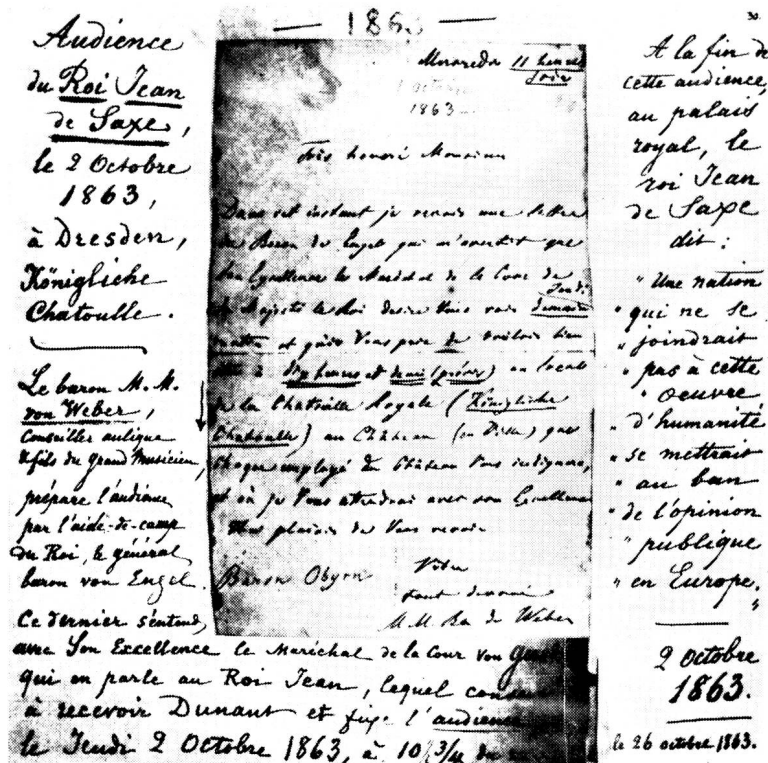 — 186. —
30.
Audience
du Roi Jean
de Saxe,
le 2 Octobre
1863,
à Dresden,
Königliche
Chatoulle.
Le baron M. M.
von Weber,
Conseiller aulique
& fils du grand Musicien,
prépare l'audience
par l'aide-de-camp
du Roi, le général
baron von Engel.
Ce dernier s'entend
avec Son Excellence le Maréchal de la Cour von
qui en parle au Roi Jean, lequel
à recevoir Dunant et fixe l'audience
le Jeudi 2 Octobre 1863, à 10 3/4 du
11 heures
Soir
1 octobre
1863
Très honoré Monsieur
Dans cet instant je reçois une lettre
du Baron de Engel qui m'avertit que
Son Excellence le Maréchal de la Cour de
Jeudi
Sa Majesté le Roi desire Vous voir demain
et qu'il Vous prie de vouloir bien
à dix heures et demi (précises) au locale
de la Chatoulle Royale (Königliche
Chatoulle) au Château (en Ville) que
chaque employé du Château Vous indiquera,
et où je Vous attendrai avec son Excellence
plaisir de Vous revoir
Baron
Votre
tout devoué
M. M. de Weber
A la fin de
cette audience,
au palais
royal, le
roi Jean
de Saxe
dit :
" Une nation
" qui ne se
" joindrait
" pas à cette
" oeuvre
" d'humanité
" se mettrait
" au ban
" de l'opinion
" publique
" en Europe. "
2 octobre
1863.
le 26 octobre 1863.